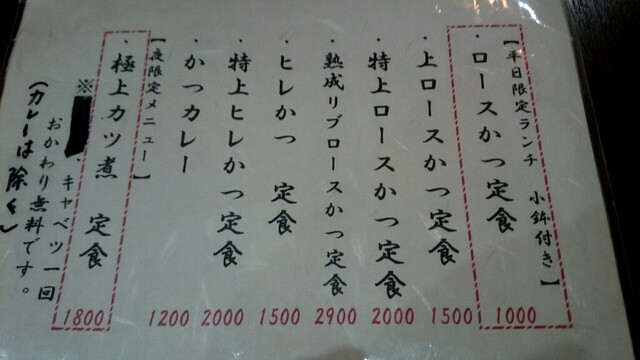 【平日限定ランチ 小鉢付き】
・ロースかつ定食 1000
・上ロースかつ定食 1500
・特上ロースかつ定食 2000
・熟成リブロースかつ定食 2900
・ヒレかつ 定食 1500
・特上ヒレかつ定食 2000
・かつカレー 1200
【夜限定メニュー】
・極上カツ煮 定食 1800
※ 、キャベツ一回
おかわり無料です。
(カレーは除く)